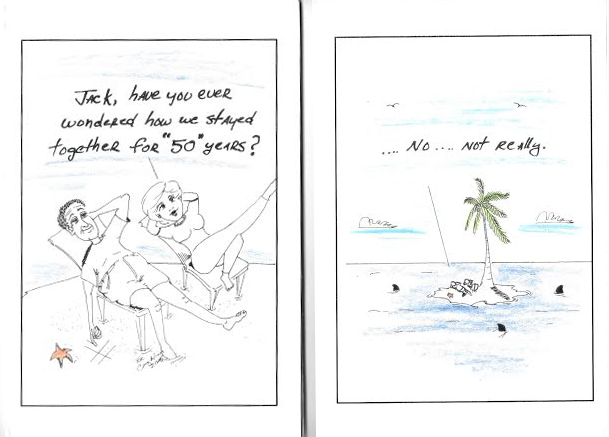 Jack, have you ever
wondered how we stayed
together for "50" years?
.... No .... Not really.